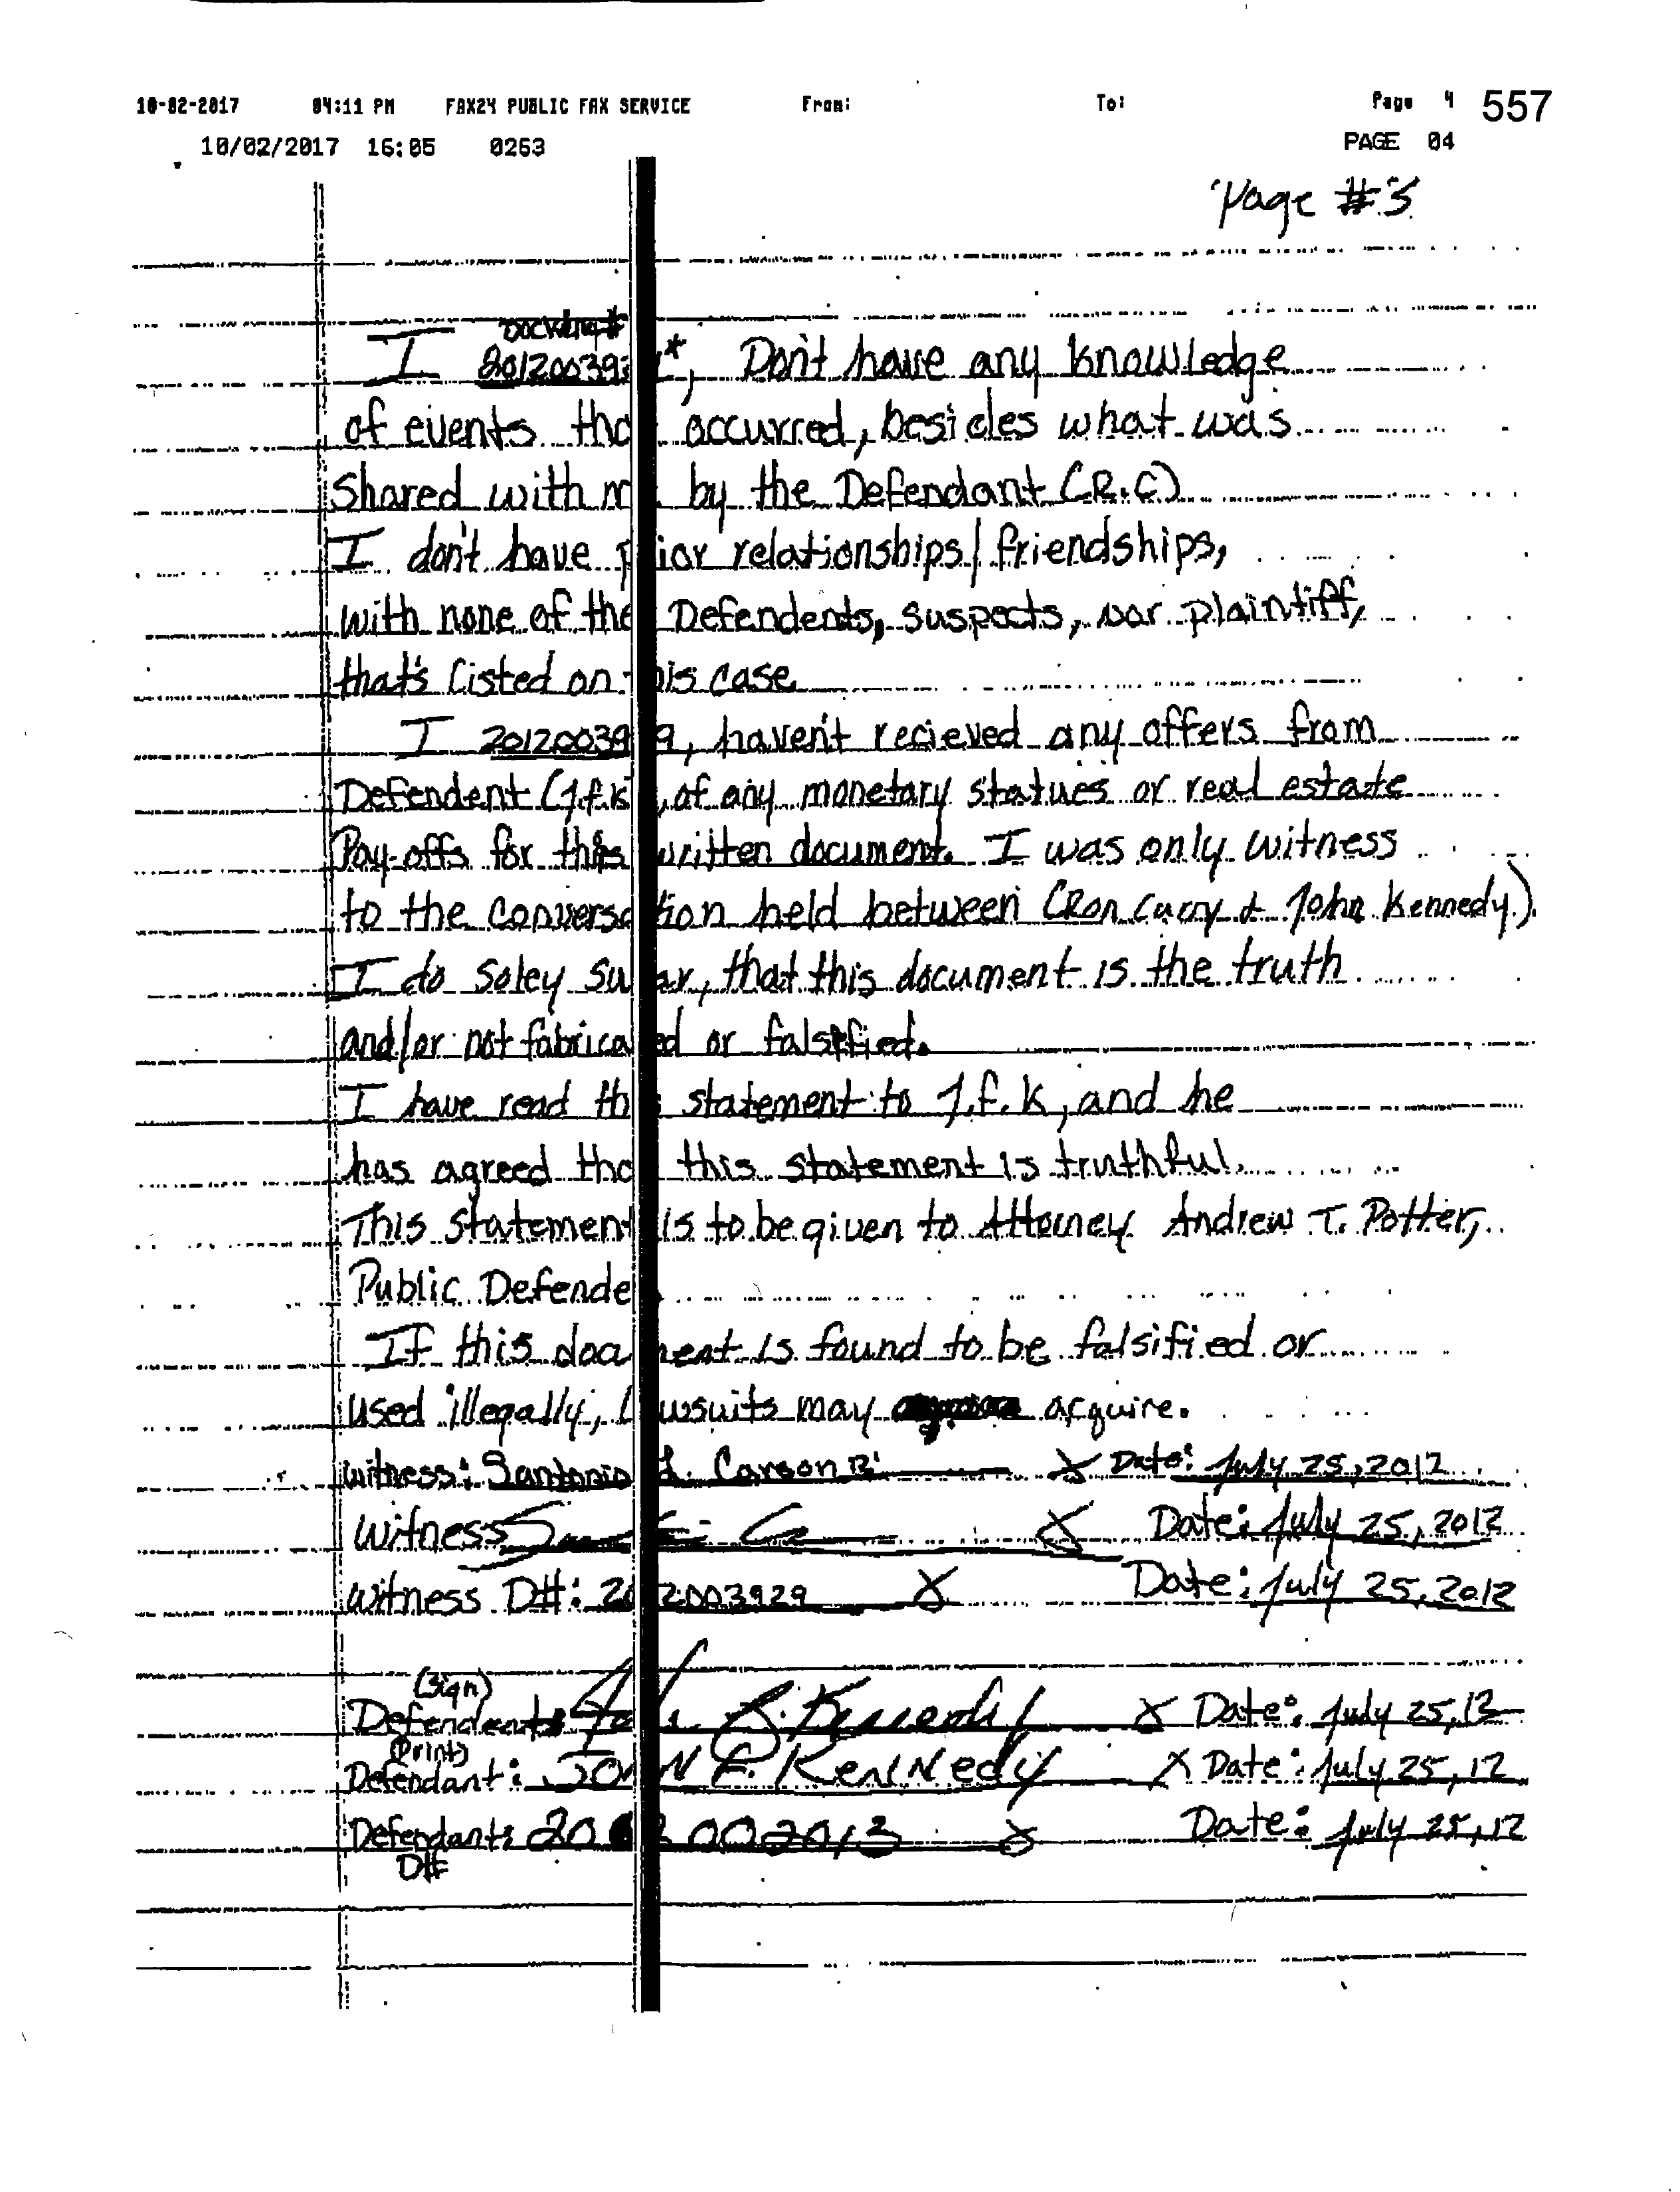 10-02-2017 04:11 PM FAX24 PUBLIC FAX SERVICE From: To: Page 4 557
10/02/2017 16:05 0263 PAGE 04
Page #3
Docking#
I 20120039 *, Don't have any knowledge
of events tha occurred, besides what was
Shared with m by the Defendant (R.C)
I don't have prior relationships/friendships,
with none of the Defendents, suspects, nor plaintiff,
that's listed on this case
I 20120039 9, haven't recieved any offers from
Defendent (J.F.K), of any monetary statues or real estate
Pay-offs for this written document. I was only witness
to the conversation held between (Ron Curry & John Kennedy.)
I do soley swear, that this document is the truth
and/or not fabricated or falsified.
I have read this statement to J.F.K, and he
has agreed tha this statement is truthful.
This statement is to be given to Attorney Andrew T. Potter,
Public Defende
If this document is found to be falsified or
used illegally, Lawsuits may acquire.
witness: Santonio L. Carson X Date: July 25, 2012
Witness X Date: July 25, 2012
witness D#: 2012003929 X Date: July 25, 2012
(Sign)
Defendent: John F. Kennedy X Date: July 25, 12
(Print)
Defendant: JOHN F. KenNedy X Date: July 25, 12
Defendant: 20 2002013 X Date: July 25, 12
D#